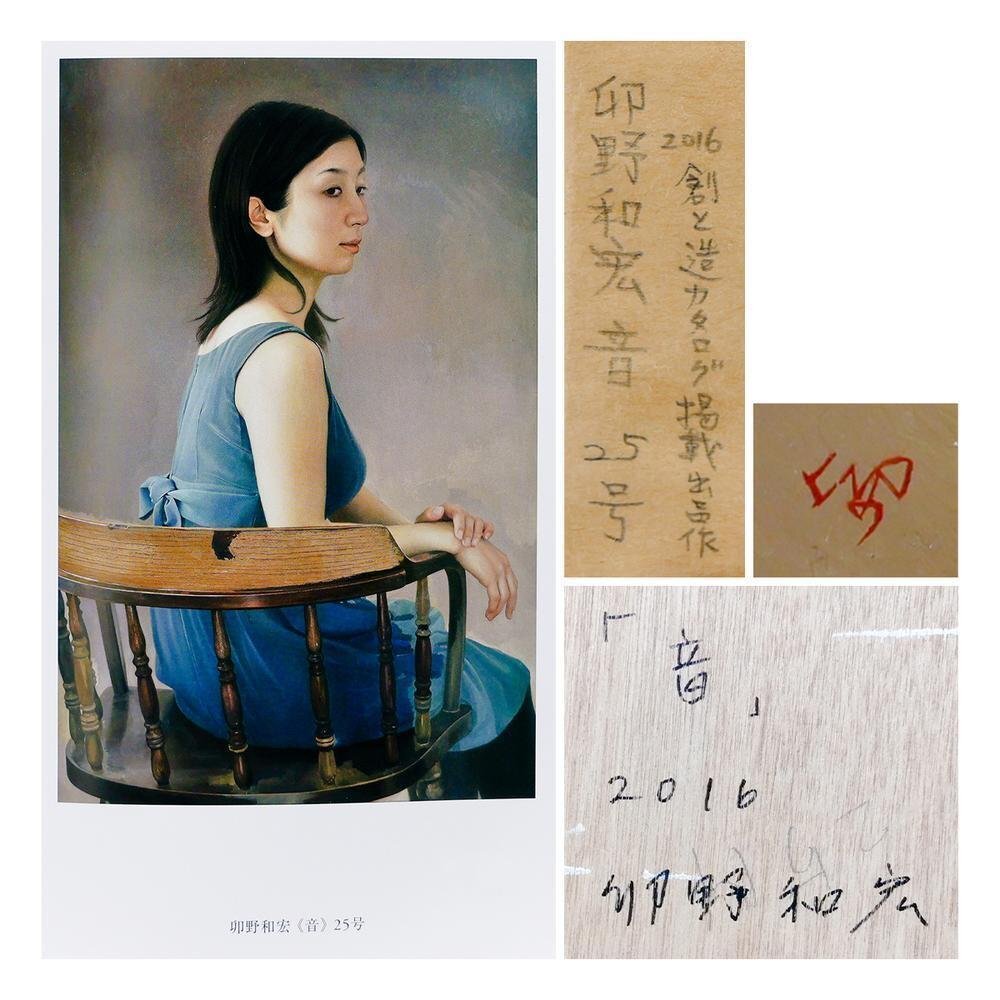 卯野和宏《音》25号
卯野和宏 音 25号
2016 創と造カタログ掲載出品作
卯
「音」
2016
卯野和宏